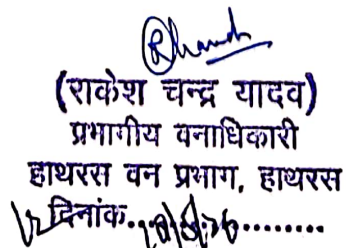 (राकेश चन्द्र यादव)
प्रभागीय वनाधिकारी
हाथरस वन प्रभाग, हाथरस
दिनांक..............